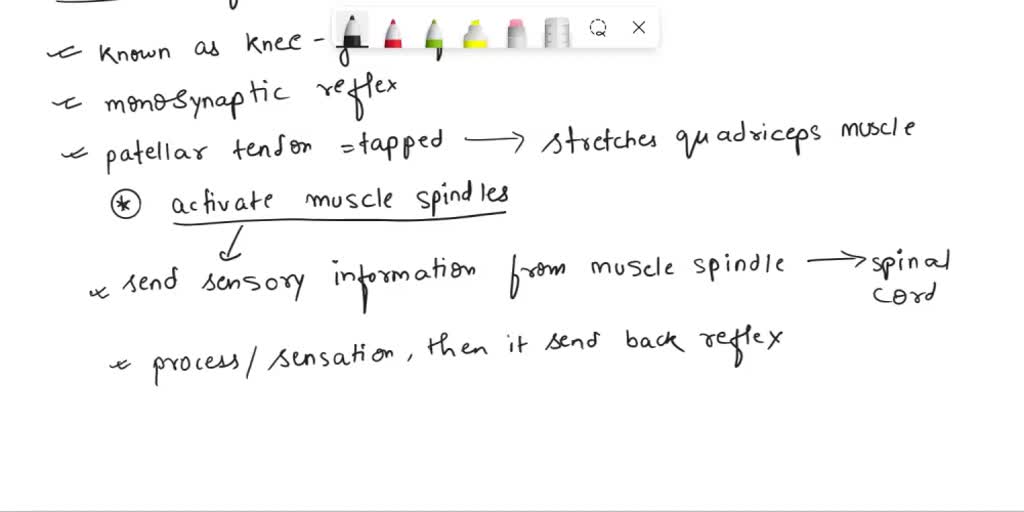 known as knee -
monosynaptic reflex
patellar tendon = tapped → stretches quadriceps muscle
* activate muscle spindles
* send sensory information from muscle spindle → spinal
cord
* process / sensation, then it send back reflex